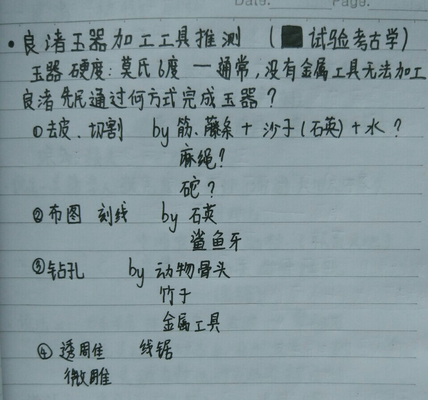 Date. Page.
• 良渚玉器加工工具推测 ( 试验考古学)
玉器硬度:莫氏6度 — 通常,没有金属工具无法加工
良渚先民通过何方式完成玉器?
①去皮、切割 by 筋、藤条 + 沙子(石英)+水 ?
麻绳?
砣?
②布图 刻线 by 石英
鲨鱼牙
③钻孔 by 动物骨头
竹子
金属工具
④ 透雕 线锯
微雕